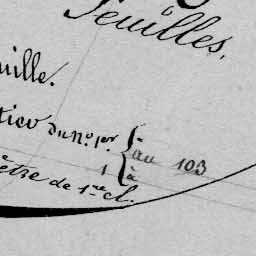 Feuilles.
uille.
du n.º 1er { au 103
1 à
être de 1re cl.